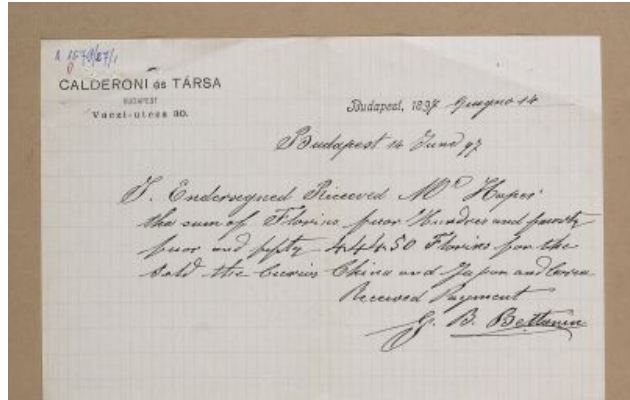 A 1579/27/1
CALDERONI és TÁRSA
BUDAPEST
Váczi-utcza 30.
Budapest, 1897 Giugno 14
Budapest 14 Jund 97
I. Endersegned Riceeved Mr Hoper
the sum of Florins fuor Hundred and fourty
fuor and fifty 444.50 Florins for the
Sold the Curios China and Japon and Corea
Received Payment
G. B. Bettanin